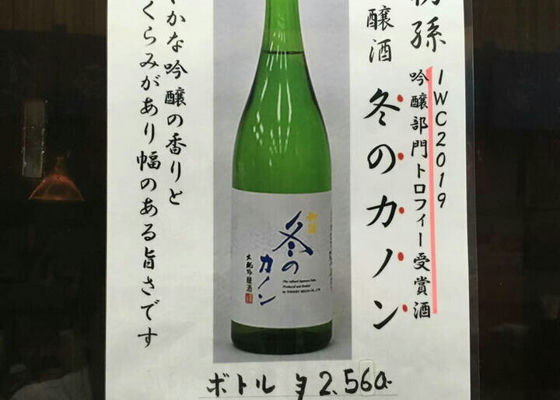 初孫
醸酒
冬のカノン
IWC2019
吟醸部門トロフィー受賞酒
やかな吟醸の香りと
くらみがあり幅のある旨さです
冬の
カノン
生酛吟醸酒
ボトル ¥2,560-